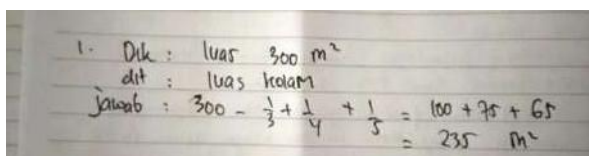 1. Dik : luas 300 m²
dit : luas kolam
jawab : 300 - 1/3 + 1/4 + 1/5 = 100 + 75 + 65
= 235 m²